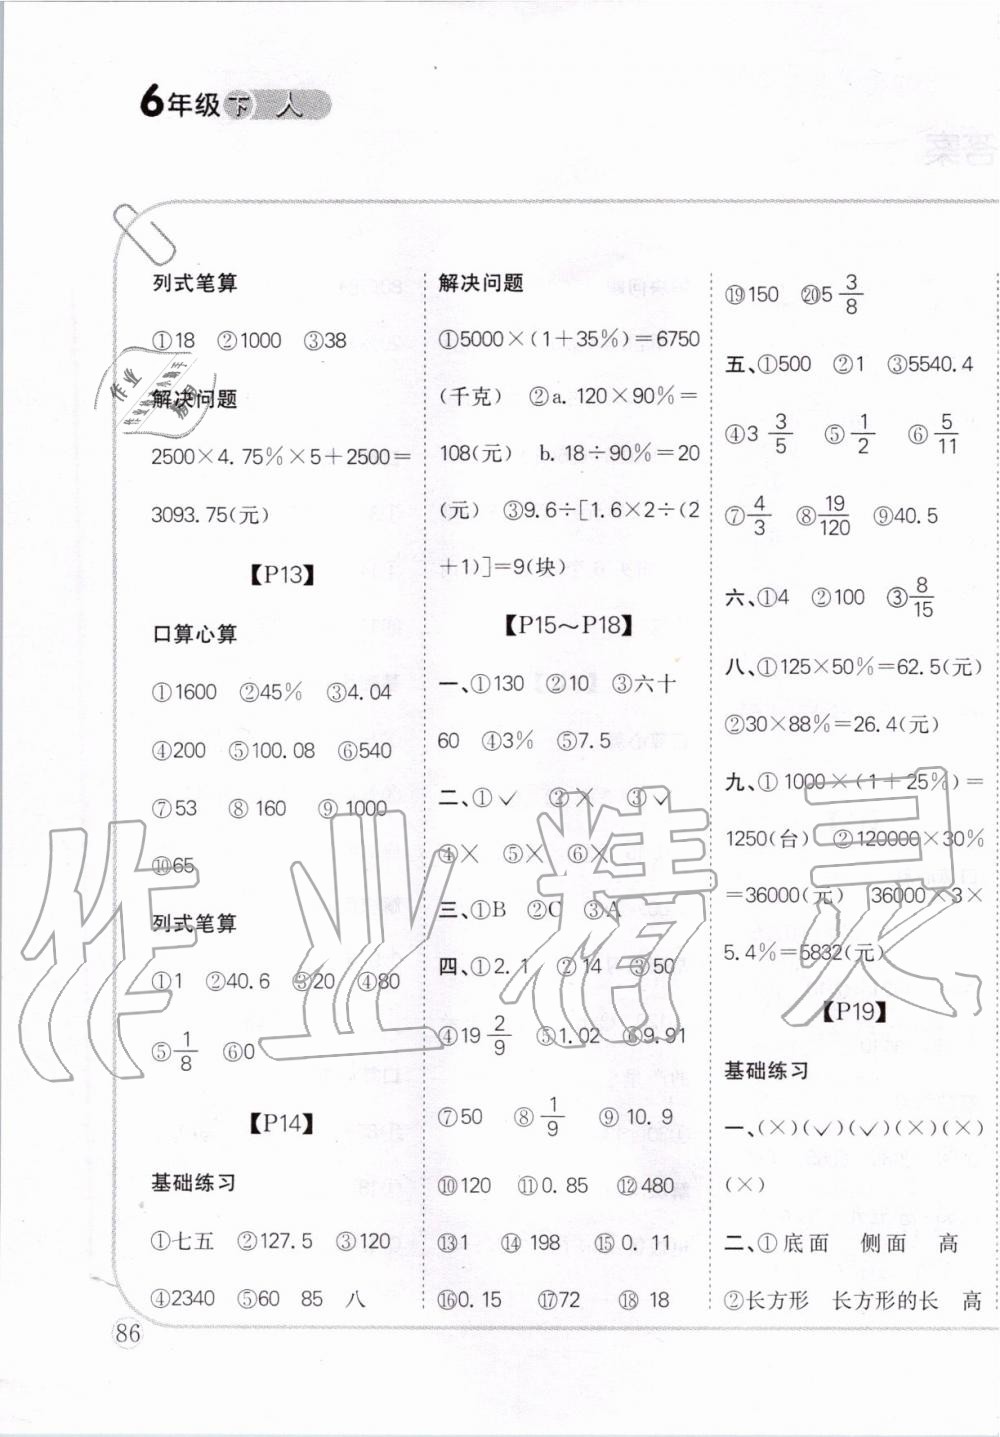 6年级下 人
答案
列式笔算
①18 ②1000 ③38
解决问题
2500×4.75%×5+2500=
3093.75(元)
【P13】
口算心算
①1600 ②45% ③4.04
④200 ⑤100.08 ⑥540
⑦53 ⑧160 ⑨1000
⑩65
列式笔算
①1 ②40.6 ③20 ④80
⑤1/8 ⑥0
【P14】
基础练习
①七五 ②127.5 ③120
④2340 ⑤60 85 八
86
解决问题
①5000×(1+35%)=6750
(千克) ②a.120×90%=
108(元) b.18÷90%=20
(元) ③9.6÷[1.6×2÷(2
+1)]=9(块)
【P15~P18】
一、①130 ②10 ③六十
60 ④3% ⑤7.5
二、①✓ ②× ③✓
④× ⑤× ⑥×
三、①B ②C ③A
四、①2.1 ②14 ③50
④19 2/9 ⑤1.02 ⑥9.91
⑦50 ⑧1/9 ⑨10.9
⑩120 ⑪0.85 ⑫480
⑬1 ⑭198 ⑮0.11
⑯0.15 ⑰72 ⑱18
⑲150 ⑳5 3/8
五、①500 ②1 ③5540.4
④3 3/5 ⑤1/2 ⑥5/11
⑦4/3 ⑧19/120 ⑨40.5
六、①4 ②100 ③8/15
八、①125×50%=62.5(元)
②30×88%=26.4(元)
九、①1000×(1+25%)=
1250(台) ②120000×30%
=36000(元) 36000×3×
5.4%=5832(元)
【P19】
基础练习
一、(×)(✓)(✓)(×)(×)
(×)
二、①底面 侧面 高
②长方形 长方形的长 高
作业精灵